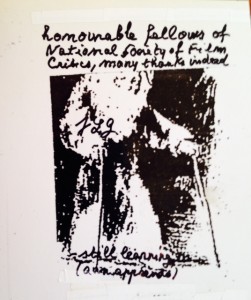 honourable fellows of
National Society of Film
Critics, many thanks indeed
JLG
still learning